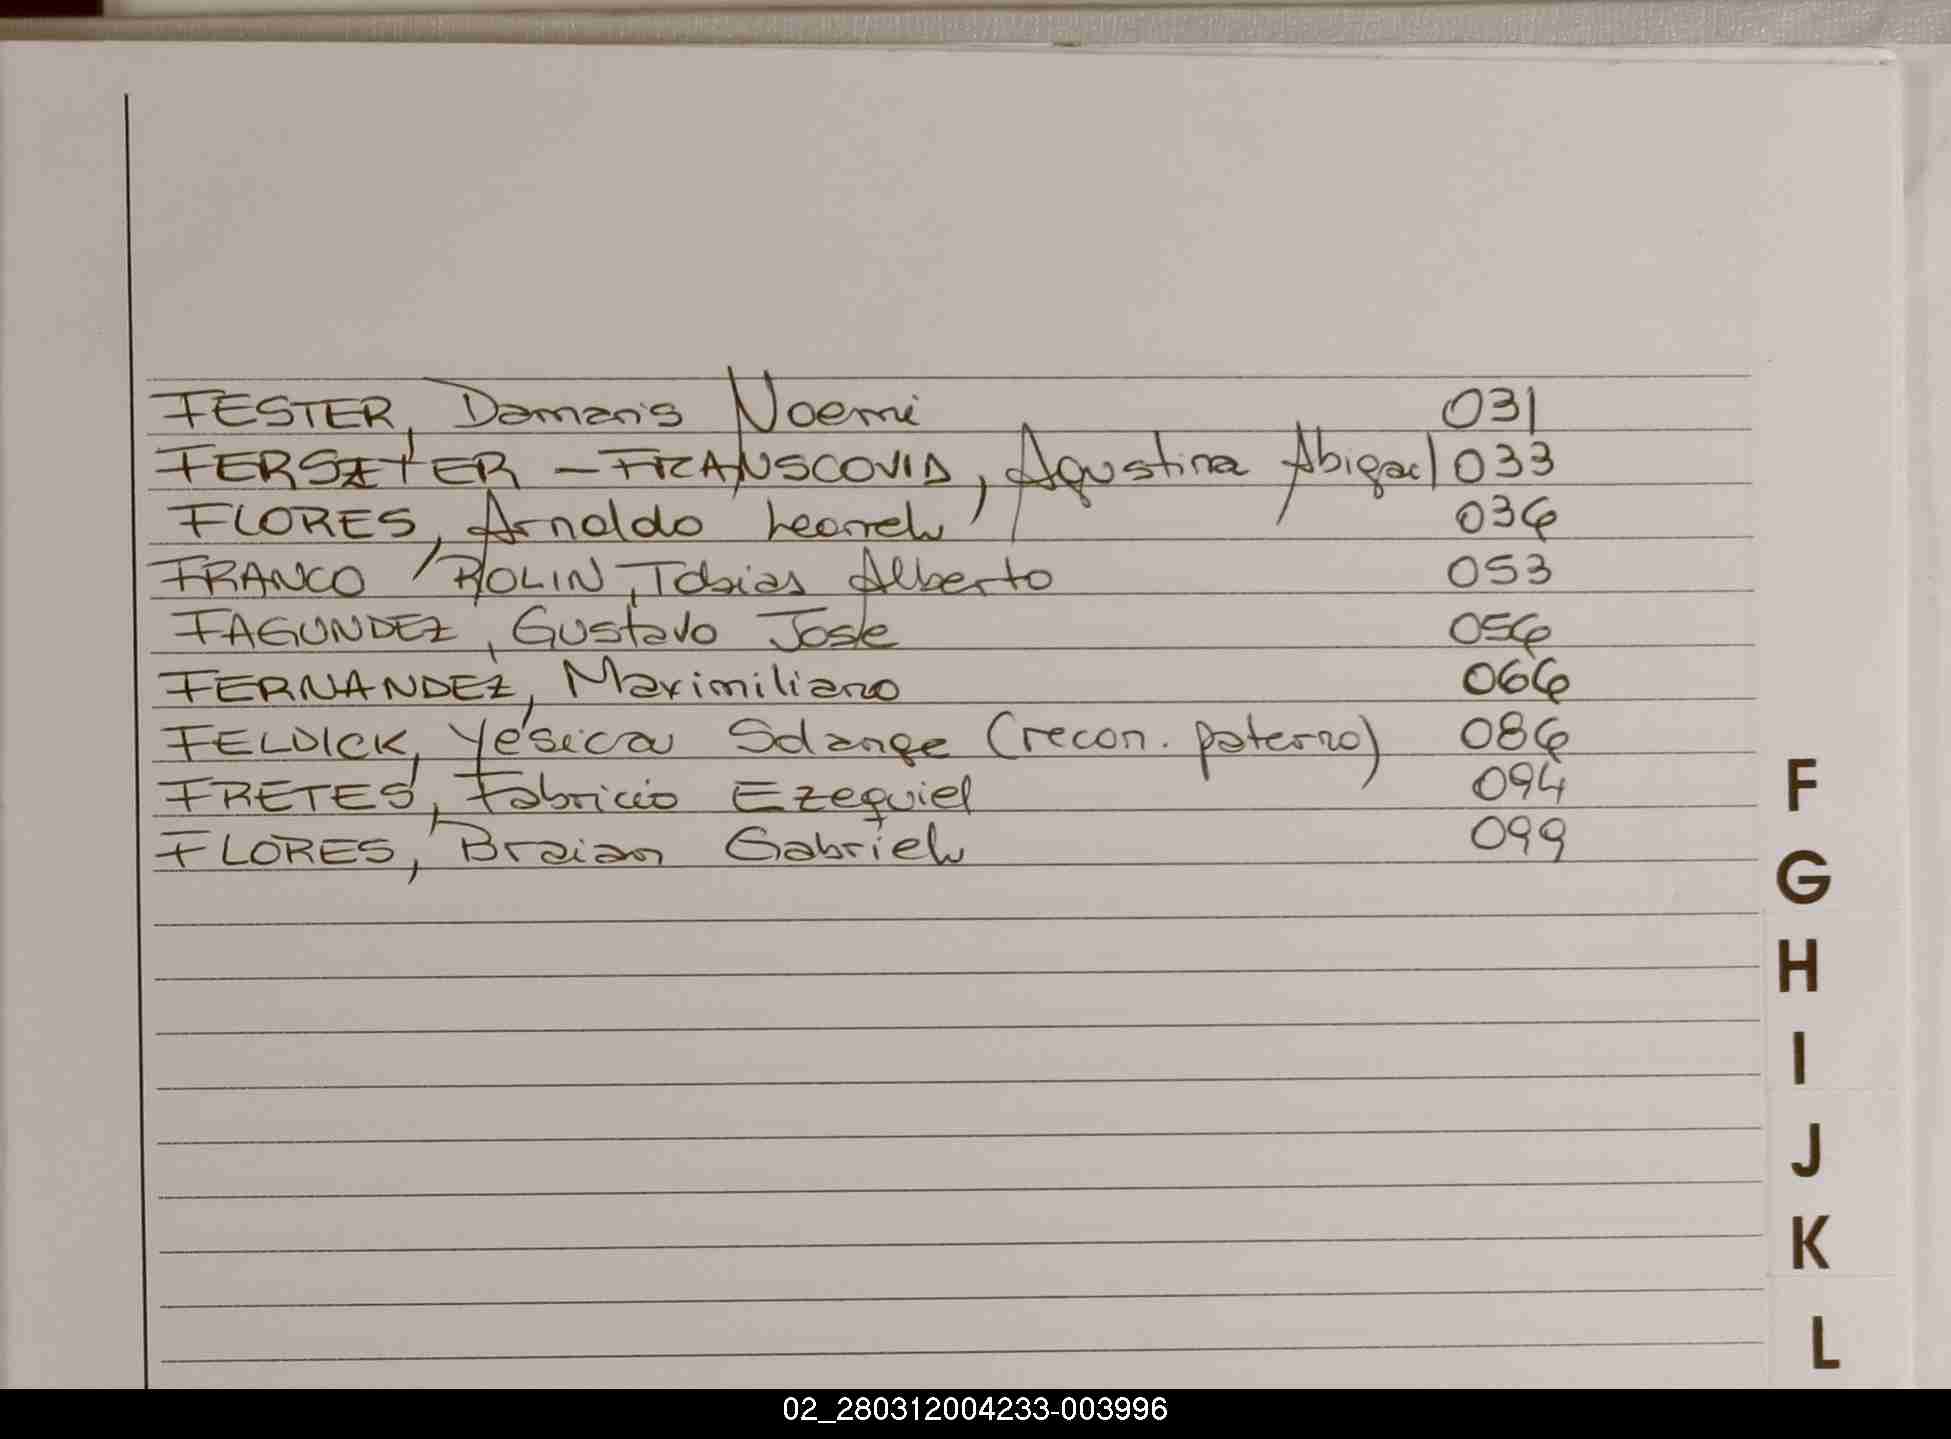 FESTER, Damaris Noemi 031
FERSZTER - FRANSCOVID, Agustina Abigael 033
FLORES, Arnaldo 036
FRANCO ROLIN, Tobias Alberto 053
FAGUNDEZ, Gustavo Jose 056
FERNANDEZ, Maximiliano 066
FELDICK, Yésica Solange (recon. paterno) 086
FRETES, Fabricio Ezequiel 094
FLORES, Braian Gabriel 099
F
G
H
I
J
K
L
02_280312004233-003996